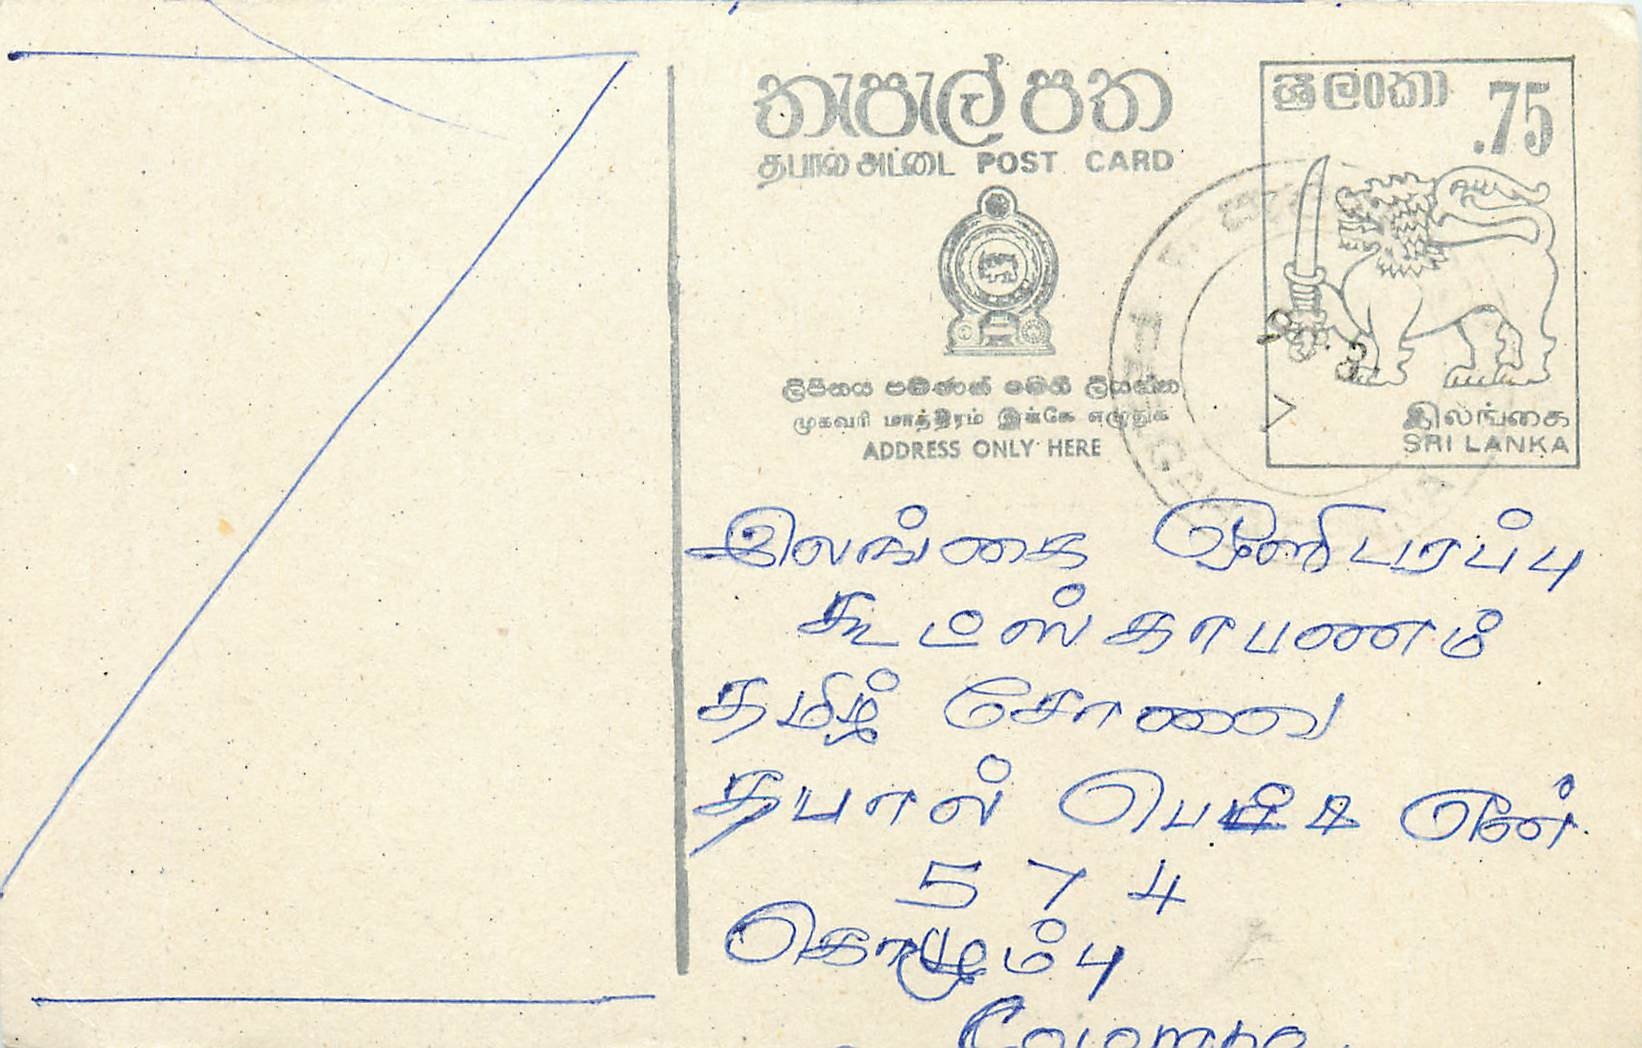 තැපැල් පත
தபால் அட்டை POST CARD
ශ්‍රී ලංකා .75
ලිපිනය පමණක් මෙහි ලියන්න
முகவரி மாத்திரம் இங்கே எழுதுக
ADDRESS ONLY HERE
இலங்கை
SRI LANKA
இலங்கை ஒளிபரப்பு
கூட்ஸ்தாபணம்
தமிழ் சோலை
தபால் பெட்டி எண்
574
கொழும்பு
Colombo